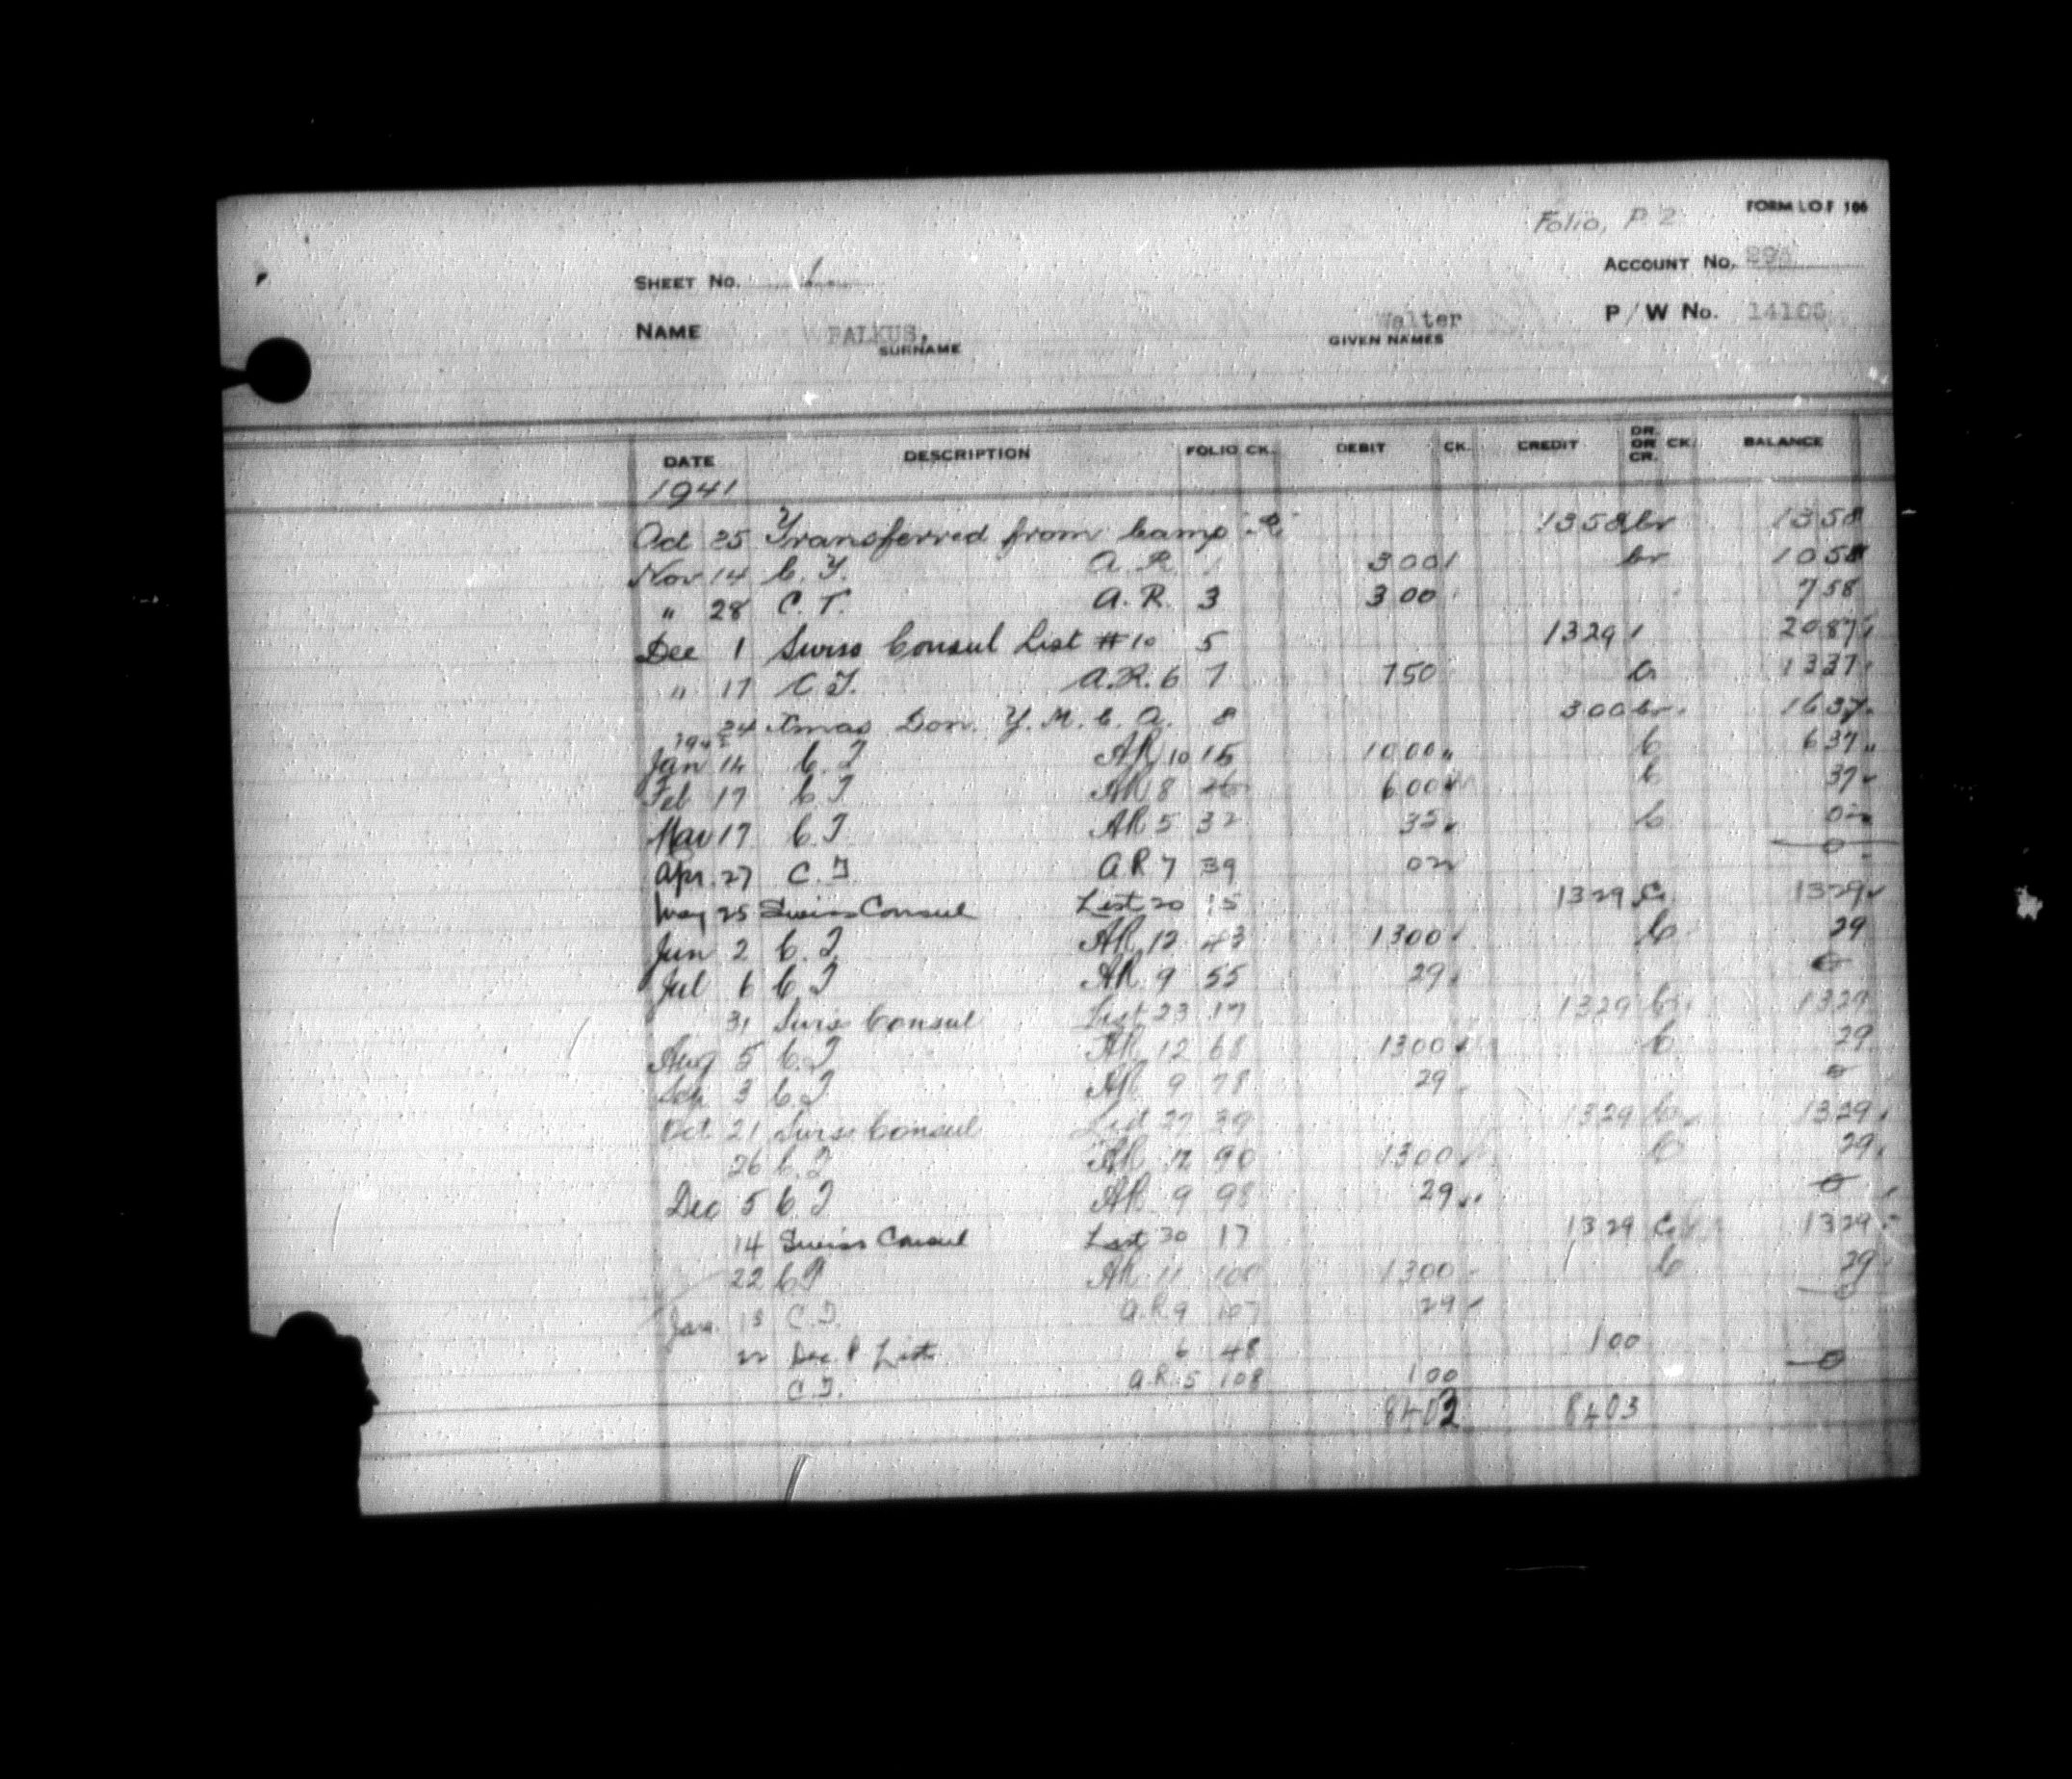 Folio, P 2
FORM I.O.F 166
SHEET No. 1
ACCOUNT No.
NAME PALKUS, Walter P/W No. 14106
SURNAME GIVEN NAMES
DATE DESCRIPTION FOLIO CK. DEBIT CK. CREDIT DR. OR CR. CK. BALANCE
1941
Oct 25 Transferred from Camp "R" 1358 Cr 1358
Nov 14 C.T. A.R. 1 300 Cr 1058
" 28 C.T. A.R. 3 300 758
Dec 1 Swiss Consul List #10 5 1329 2087
" 17 C.T. A.R. 6 7 750 Cr 1337
24 Xmas Don. Y.M.C.A. 8 300 Cr 1637
1942
Jan 14 C.T AR 10 15 1000 C 637
Feb 17 C.T AR 8 26 600 C 37
Mar 17 C.T. AR 5 32 35 C 02
0
Apr. 27 C.T. AR 7 39 02
May 25 Swiss Consul List 20 15 1329 Cr 1329
Jun 2 C.T AR 12 43 1300 C 29
Jul 6 C.T AR 9 55 29 0
31 Swiss Consul List 23 17 1329 Cr 1329
Aug 5 C.T AR 12 68 1300 C 29
Sep 3 C.T AR 9 78 29 0
Oct 21 Swiss Consul List 27 39 1329 Cr 1329
26 C.T AR 12 90 1300 C 29
Dec 5 C.T AR 9 98 29 0
14 Swiss Consul List 30 17 1329 Cr 1329
22 C.T AR 11 100 1300 C 29
Jan. 13 C.T. A.R 9 107 29 0
22 Dec. P List 6 48 100
C.T. A.R. 5 108 100 0
8403 8403